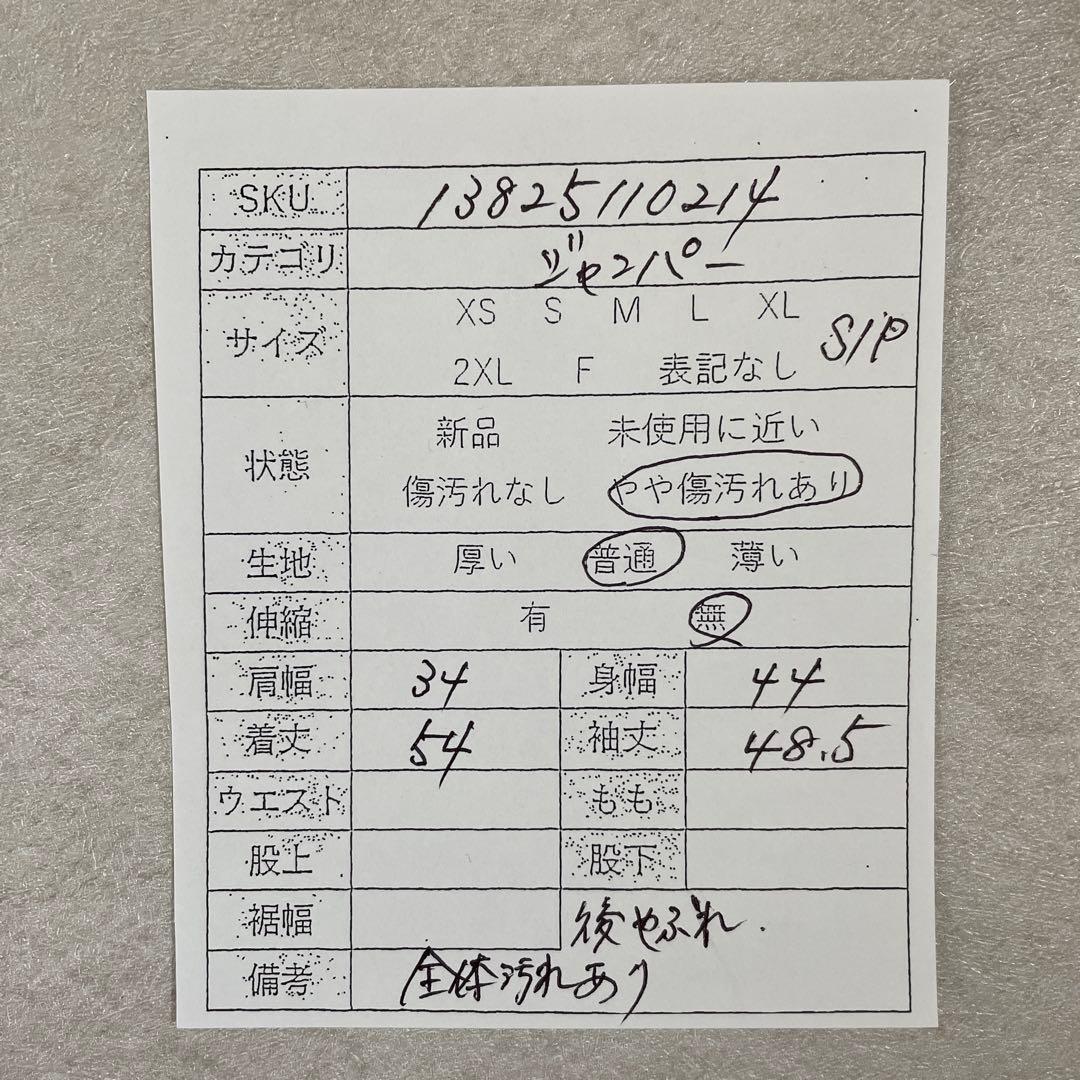 SKU 13825110214
カテゴリ ジャンパー
サイズ XS S M L XL
2XL F 表記なし S/P
状態 新品 未使用に近い
傷汚れなし やや傷汚れあり
生地 厚い 普通 薄い
伸縮 有 無
肩幅 34 身幅 44
着丈 54 袖丈 48.5
ウエスト もも
股上 股下
裾幅 後やぶれ.
備考 全体汚れあり